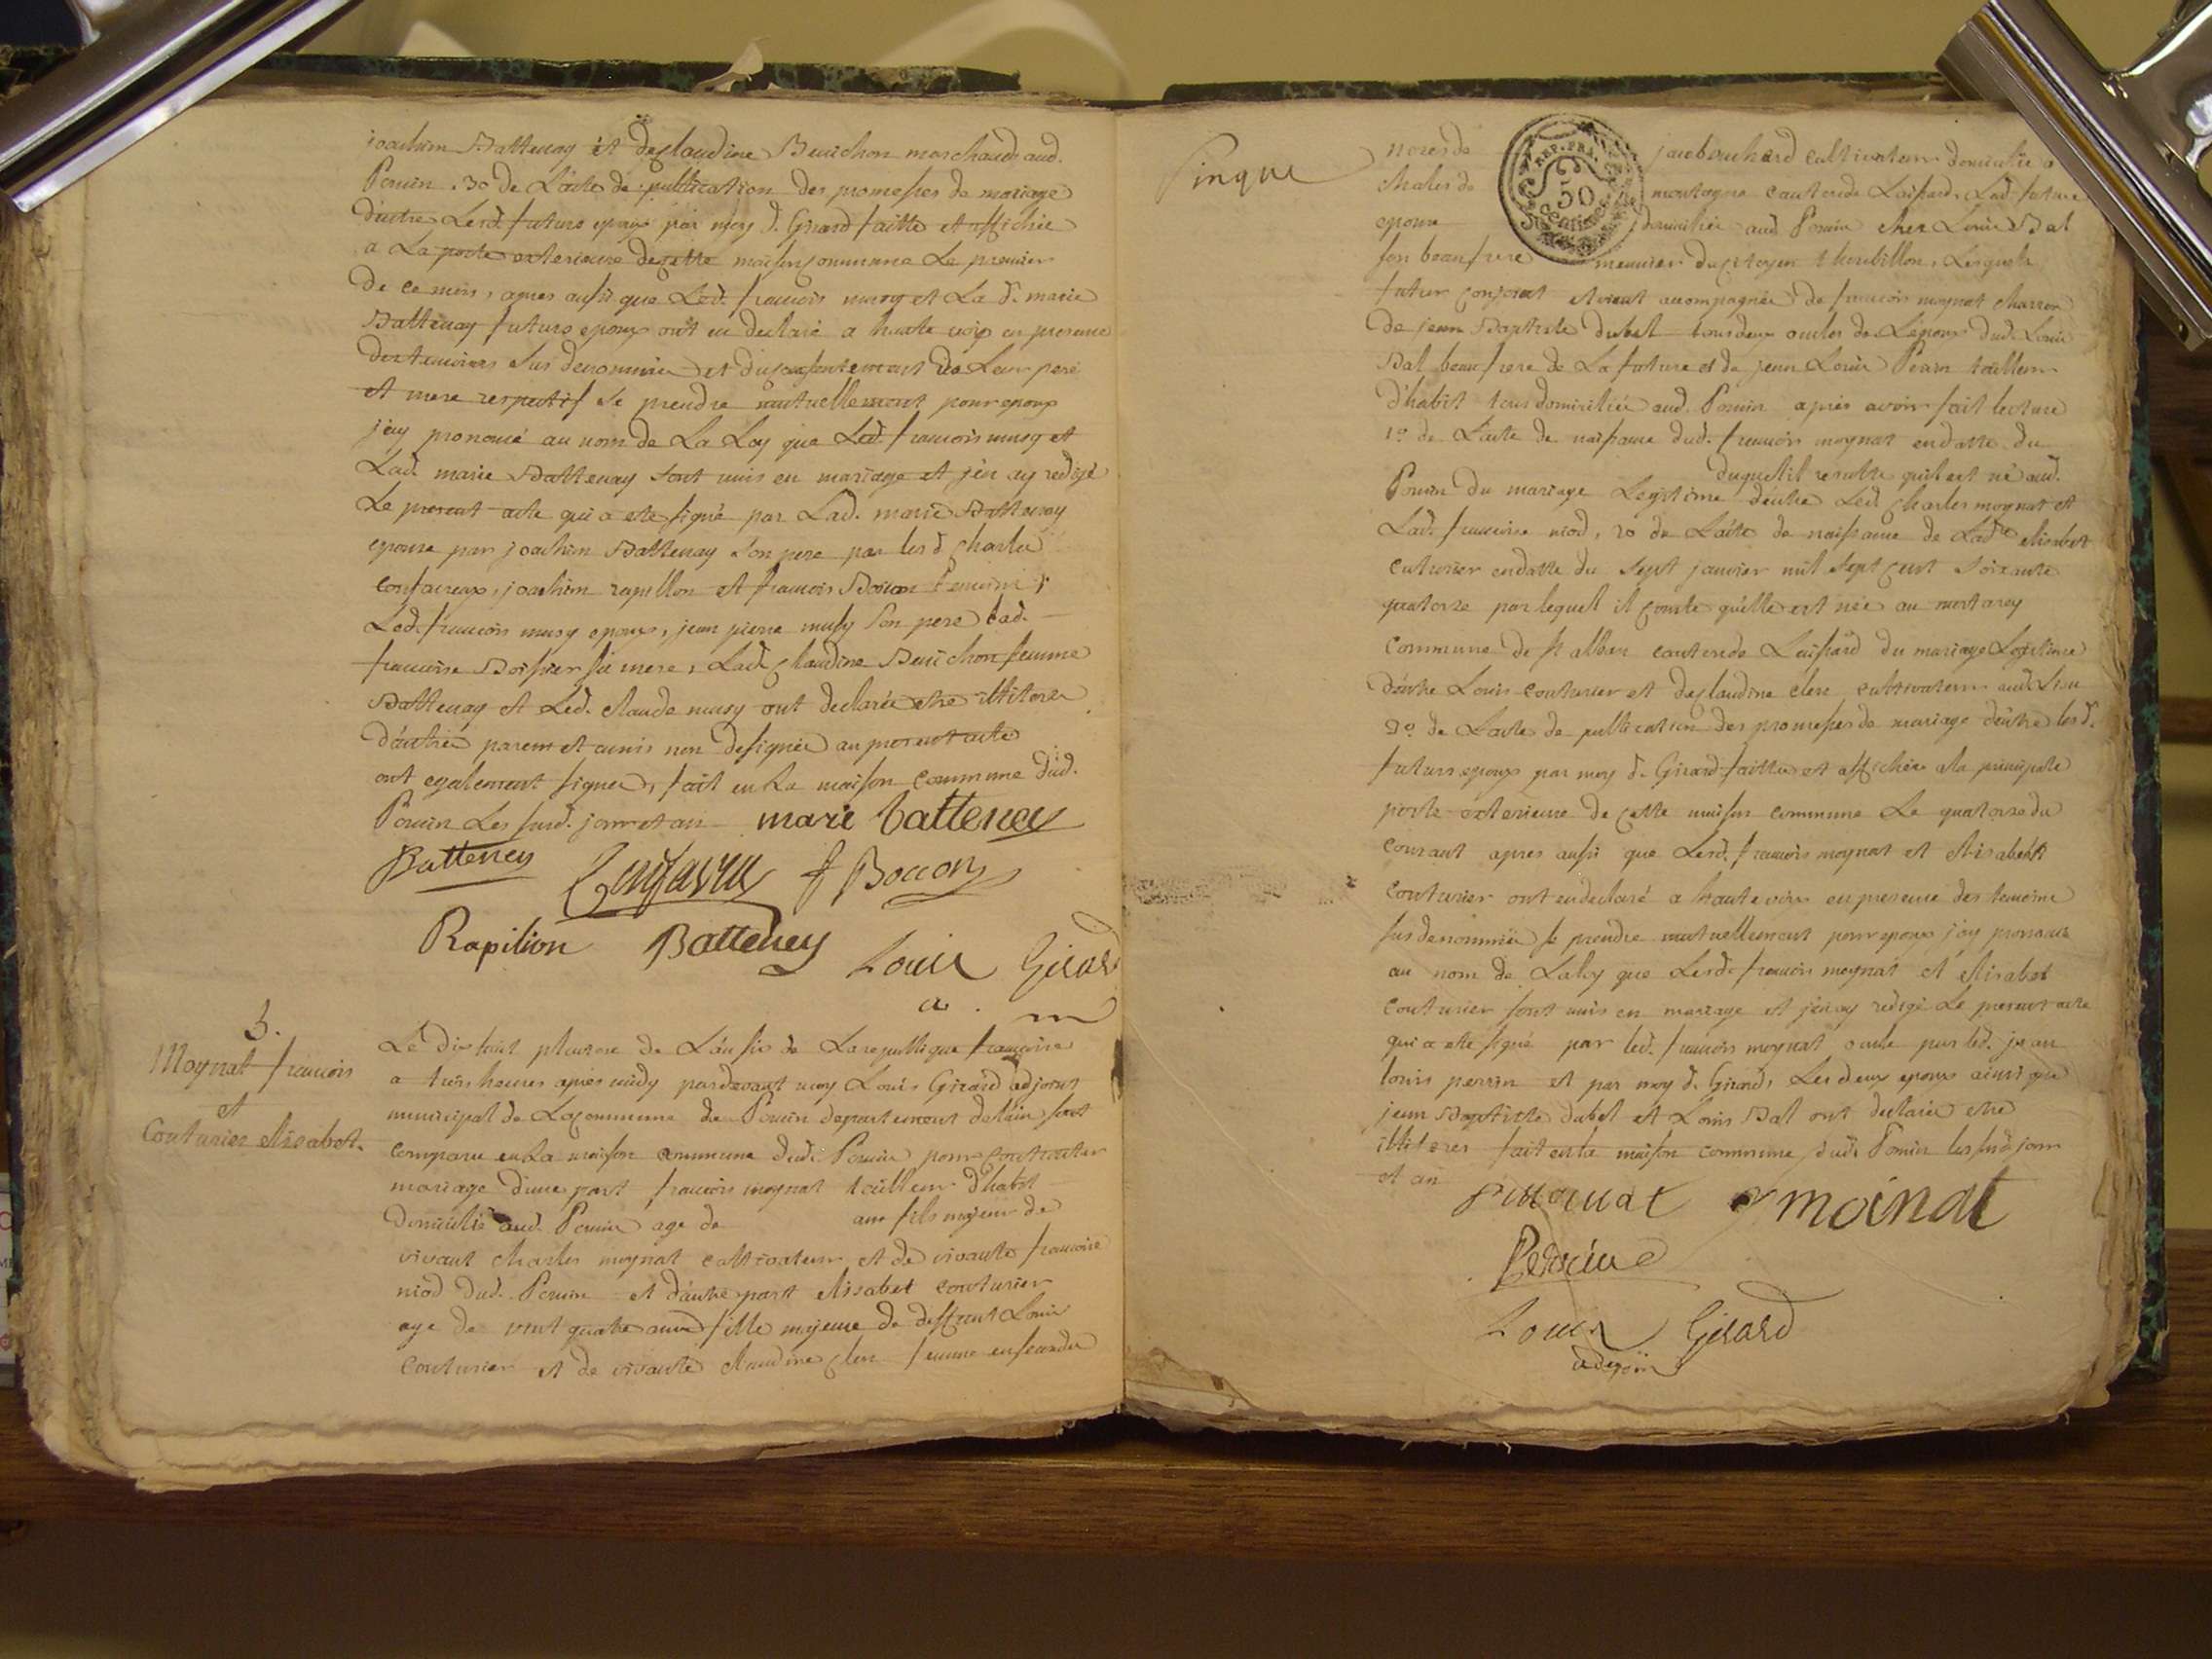 joachim Battenay et de claudine Benichon marchand aud.
Poncin. 3o de L'acte de publication des promesses de mariage
d'entre Lesd. futurs epoux par moy d. Girard faitte et affichée
a La porte exterieure de cette maison commune Le premier
de ce mois, apres aussi que Led. francois musy et La d. marie
Battenay futurs epoux ont eu declaré a haute voix en presence
des temoins sus denommés et du consentement de Leur pere
et mere respectif se prendre mutuellement pour epoux
j'ay prononcé au nom de La Loy que Led. francois musy et
Lad. marie Battenay sont unis en mariage et j'en ay redigé
Le present acte qui a ete signé par Lad. marie Battenay
epouse par joachim Battenay son pere par les d. charles
joachim rapillon et francois Bocon temoins
Led. francois musy epoux, jean pierre musy son pere Lad.
francoise sa mere, Lad. claudine Benichon femme
Battenay et Led. claude musy ont declarés etre illitores
d'autres parens et amis non designés au present acte
ont egalement signés, fait en La maison commune dud.
Poncin Les susd. jour et an marie battenay
Battenay f Bocon
Rapilion Battenay Louis Girard
a. m
5.
Moynat francois
et
Couturier elisabet.
Le dix huit pluviose de L'an six de La republique francoise
a trois heures apres midy pardevant moy Louis Girard adjoint
municipal de La commune de Poncin departement de l'ain sont
comparu en La maison commune dud. Poncin pour contracter
mariage d'une part francois moynat tailleur d'habit
domicilié aud. Poncin age de ans fils majeur de
vivant charles moynat cultivateur et de vivante francoise
niod dud. Poncin et d'autre part elisabet couturier
age de vint quatre ans fille majeure de deffunt Louis
couturier et de vivante claudine clerc femme en secondes
Pinque
noces de jacob cultivateur domicilié a
chales de montagne canton de Lad. future
epouse domiciliée aud. Poncin chez Louis Bal
son beau frere meunier du citoyen thoubillon, Lesquels
futur conjoint etoient accompagnés de francois moynat charron
de jean Baptiste dubel tous deux oncles de L'epoux dud. Louis
Bal beau frere de La future et de jean Louis Perrin tailleur
d'habit tous domiciliés aud. Poncin apres avoir fait lecture
1o de L'acte de naissance dud. francois moynat en datte du
duquel il resulte qu'il est né aud.
Poncin du mariage Legitime d'entre Led. charles moynat et
Lad. francoise niod, 2o de L'acte de naissance de Lad. elisabet
couturier en datte du sept janvier mil sept cent soixante
quatorze par lequel il conste qu'elle est née au mortarey
commune de st alban canton de du mariage Legitime
d'entre Louis couturier et de claudine clerc cultivateurs aud. Lieu
3o de L'acte de publication des promesses de mariage d'entre les d.
futurs epoux par moy d. Girard faitte et affichée a la principale
porte exterieure de cette maison commune Le quatorze du
courant apres aussi que Lesd. francois moynat et elisabeth
couturier ont eu declaré a haute voix en presence des temoins
sus denommés se prendre mutuellement pour epoux j'ay prononcé
au nom de La loy que Lesd. francois moynat et elisabet
couturier sont unis en mariage et j'en ay redigé Le present acte
qui a ete signé par led. francois moynat oncle par led. jean
louis perrin et par moy d. Girard, Les deux epoux ainsi que
jean Baptiste dubel et Louis Bal ont declarés etre
illiteres fait en la maison commune dud. Poncin les susd. jour
et an moinat
REP. FRA.
50
Centimes
Louis Girard
adejoin